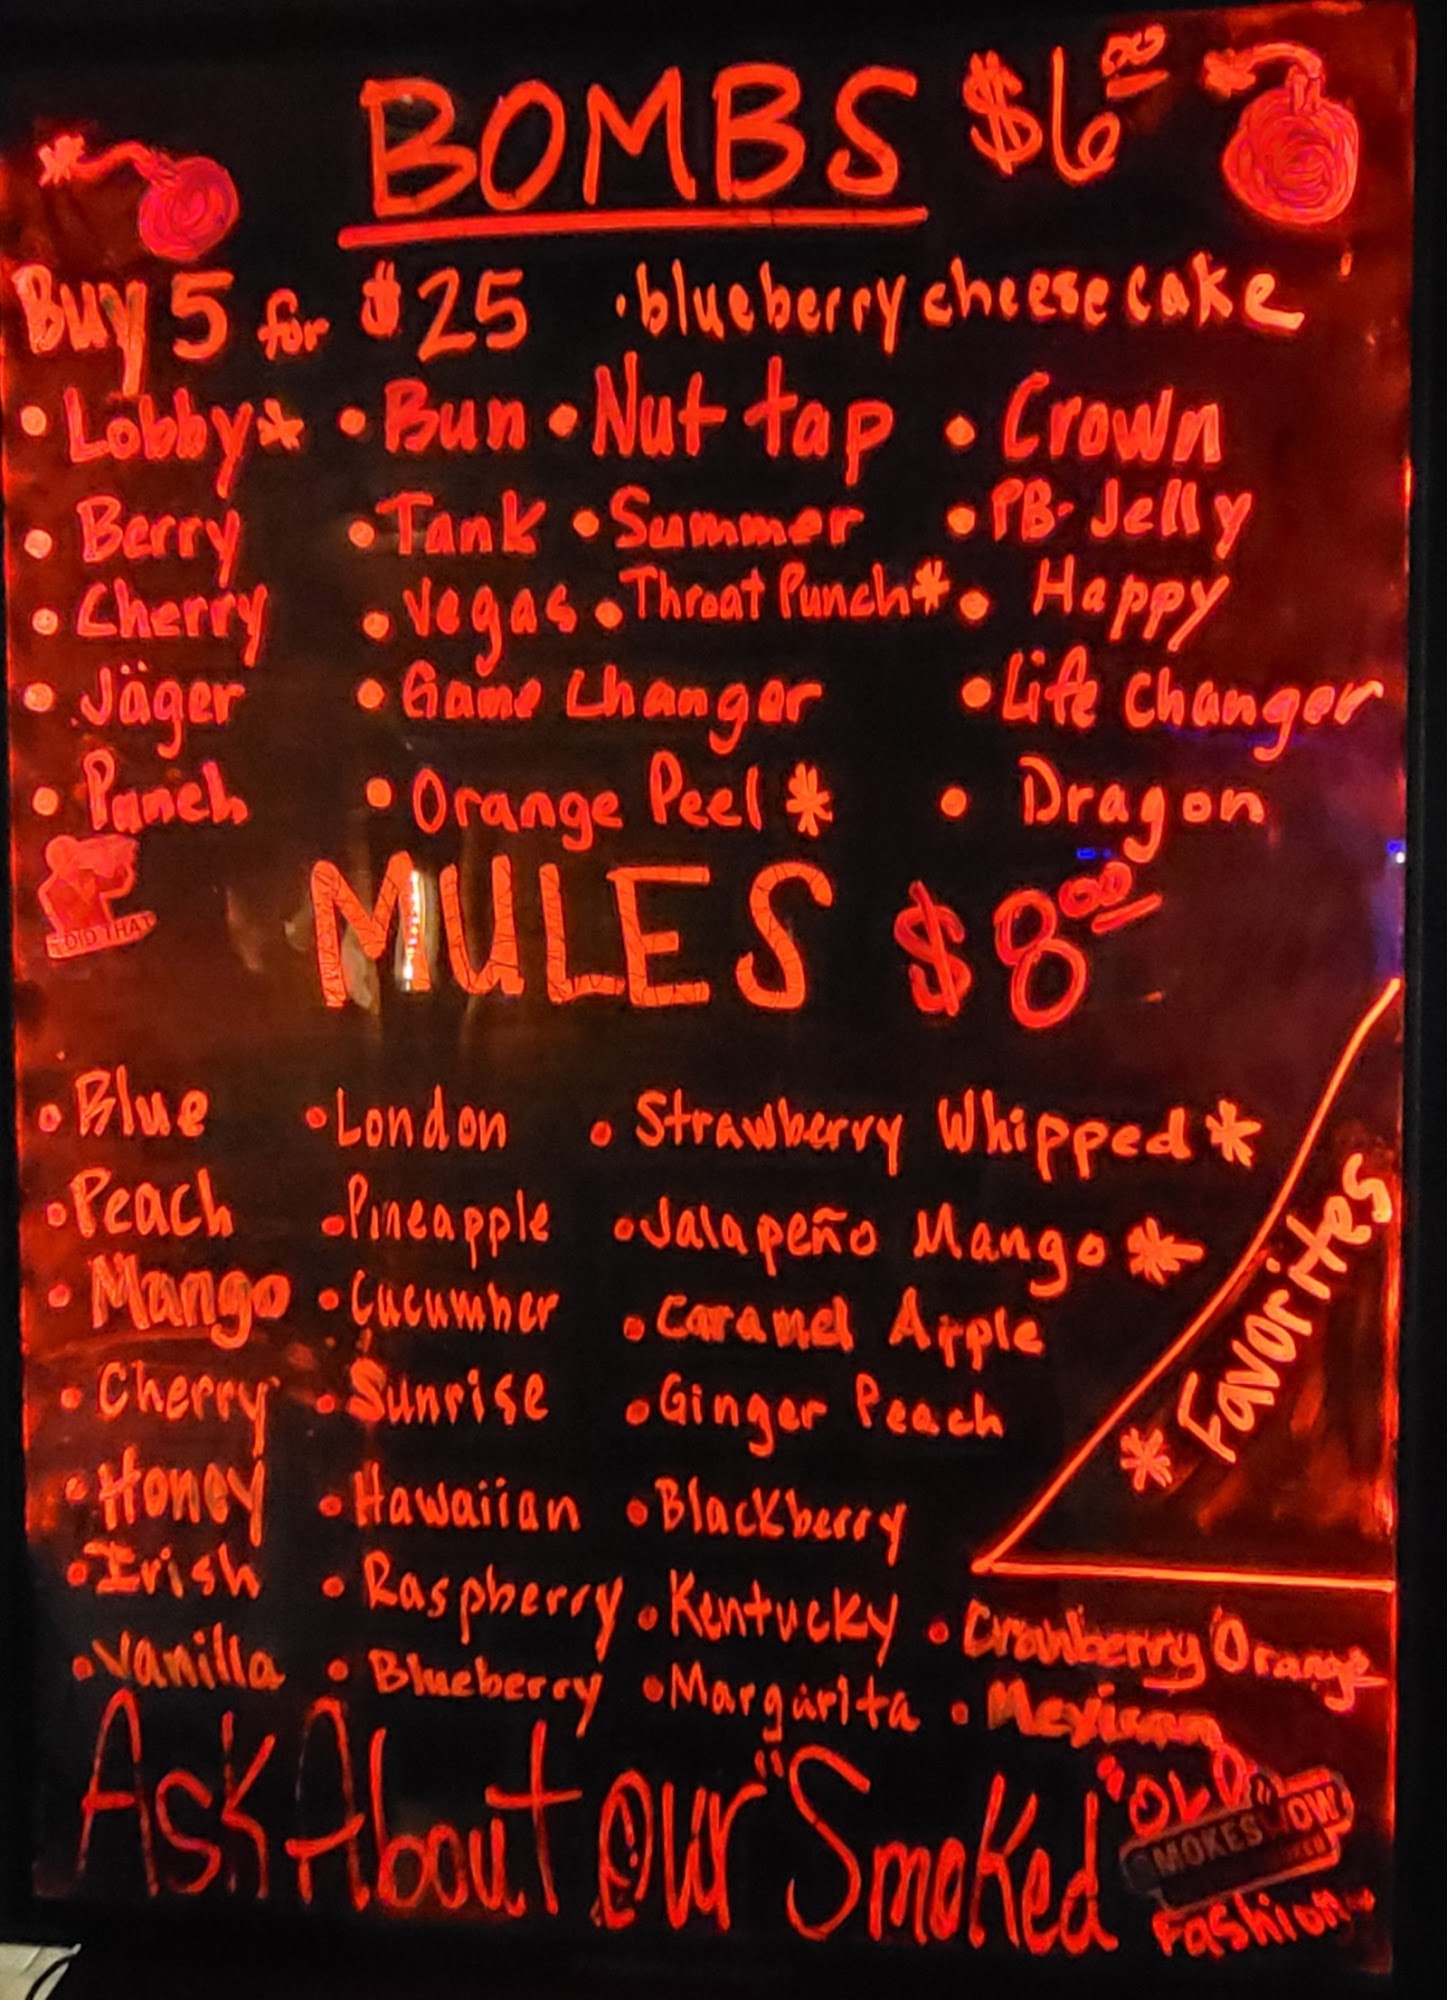 BOMBS $6.00
Buy 5 for $25 • blueberry cheese cake
• Lobby* • Bun • Nut tap • Crown
• Berry • Tank • Summer • PB-Jelly
• Cherry • Vegas • Throat Punch* • Happy
• Jäger • Game Changer • Life Changer
• Punch • Orange Peel * • Dragon
I DID THAT
MULES $8.00
• Blue • London • Strawberry Whipped *
• Peach • Pineapple • Jalapeño Mango *
• Mango • Cucumber • Caramel Apple
• Cherry • Sunrise • Ginger Peach
* Favorites
• Honey • Hawaiian • Blackberry
• Irish • Raspberry • Kentucky • Cranberry Orange
• Vanilla • Blueberry • Margarita • Mexican
Ask About our "Smoked "OLD"
Fashion"